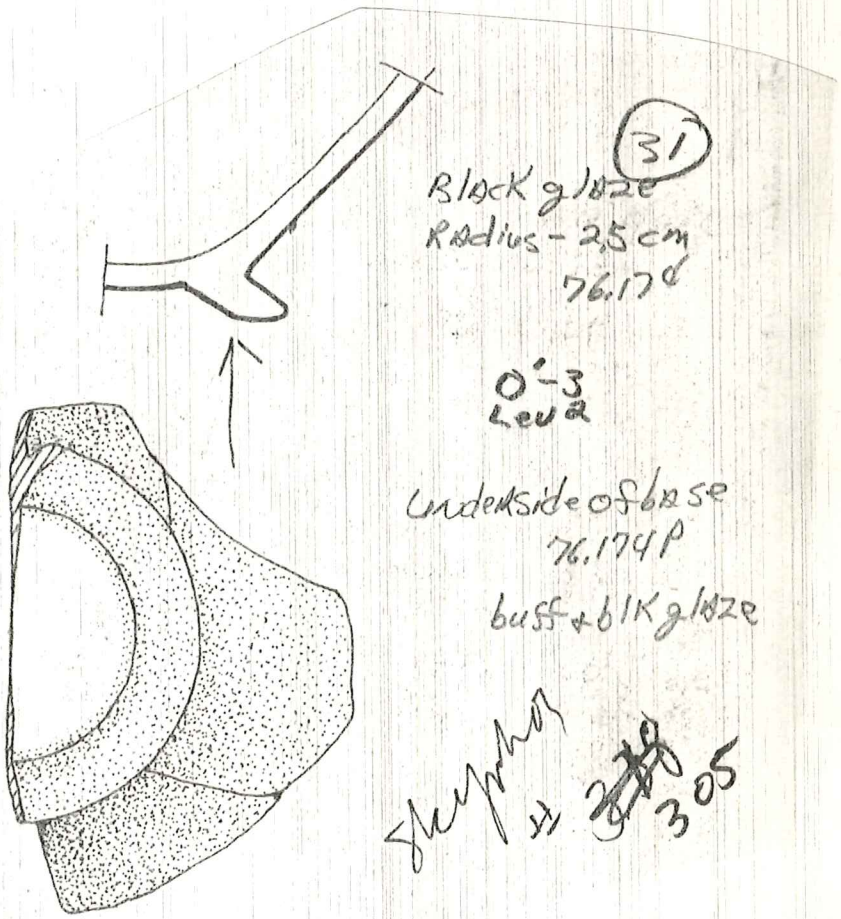 31
Black glaze
Radius - 2.5 cm
O'-3
Lev 2
Underside of base
76.174P
buff + blk glaze
Skyphos
305